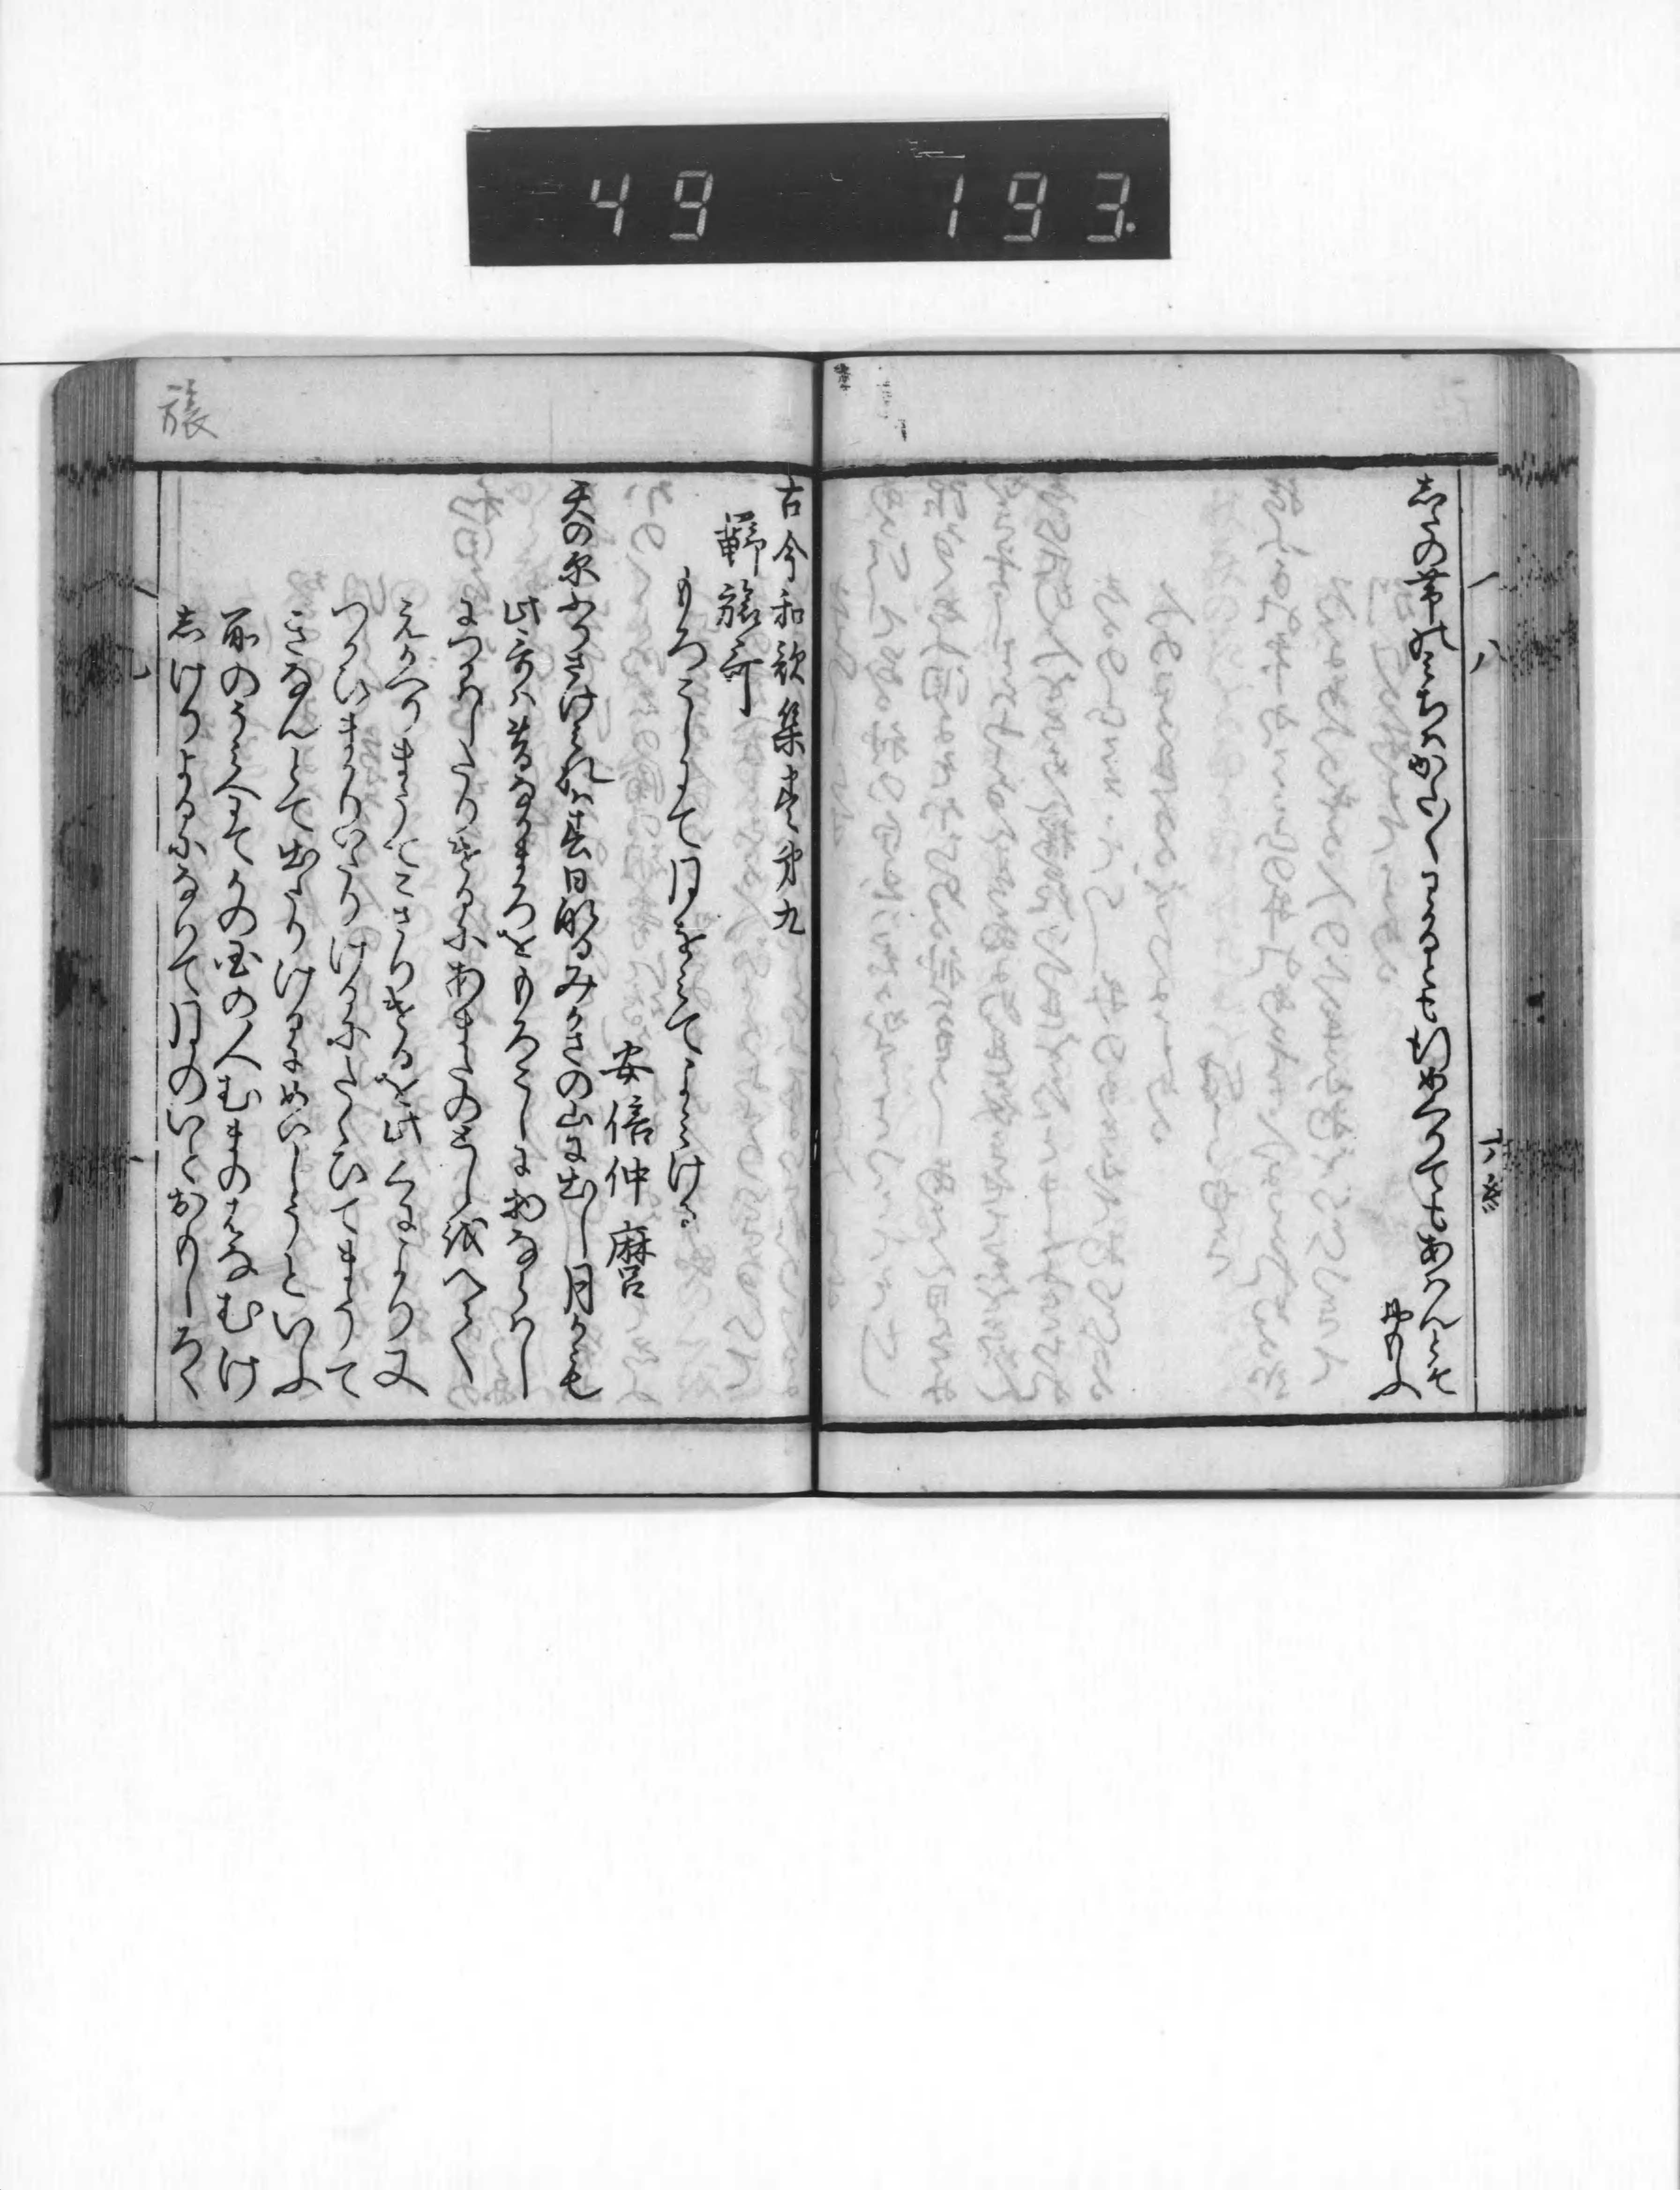 49 193
したの帯のみちはかた〳〵わかるとも行めくりてもあはんとそ
おもふ
八
古今和歌集巻第九
羇旅哥
もろこしにて月をみてよみける
安倍仲麿
天の原ふりさけみれは春日なるみかさの山に出し月かも
此哥は昔なかまろをもろこしに物ならはし
につかはしたりけるにあまたのとしをへて
えかへりまうてこさりけるを此くにより又
つかひまかりいたりけるにたくひてまうて
きなんとて出たりけるにめいしうといふ
所のうみへにてかの国の人むまのはなむけ
しけりよるになりて月のいとおもしろく
旅